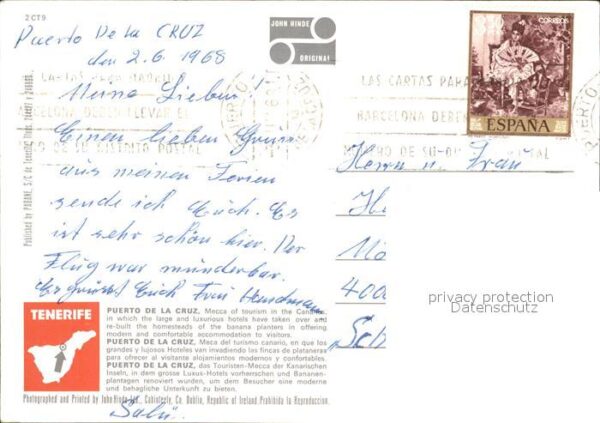 2CT9
JOHN HINDE
ORIGINAL
Puerto De La CRUZ
den 2.6.1968
Meine Lieben!
Einen lieben Gruss
aus meinen Ferien
sende ich Euch. Es
ist sehr schön hier. Der
Flug war wunderbar.
Es grüsst Euch Frau
Salü.
CORREOS
ESPAÑA
LAS CARTAS PARA MADRID
BARCELONA DEBEN LLEVAR EL
DE SU DISTRITO POSTAL
LAS CARTAS PARA
BARCELONA DEBEN
PUERTO
Herrn u. Frau
400
privacy protection
Datenschutz
Published by
TENERIFE
PUERTO DE LA CRUZ, Mecca of tourism in the Canaries,
in which the large and luxurious hotels have taken over and
re-built the homesteads of the banana planters in offering
modern and comfortable accommodation to visitors.
PUERTO DE LA CRUZ, Meca del turismo canario, en que los
grandes y lujosos Hoteles van invadiendo las fincas de plataneras
para ofrecer al visitante alojamientos modernos y confortables.
PUERTO DE LA CRUZ, das Touristen-Mecca der Kanarischen
Inseln, in dem grosse Luxus-Hotels vorherrschen und Bananen-
plantagen renoviert wurden, um dem Besucher eine moderne
und behagliche Unterkunft zu bieten.
Photographed and Printed by John Hinde Ltd., Cabinteely, Co. Dublin, Republic of Ireland Prohibida la Reproduccion.